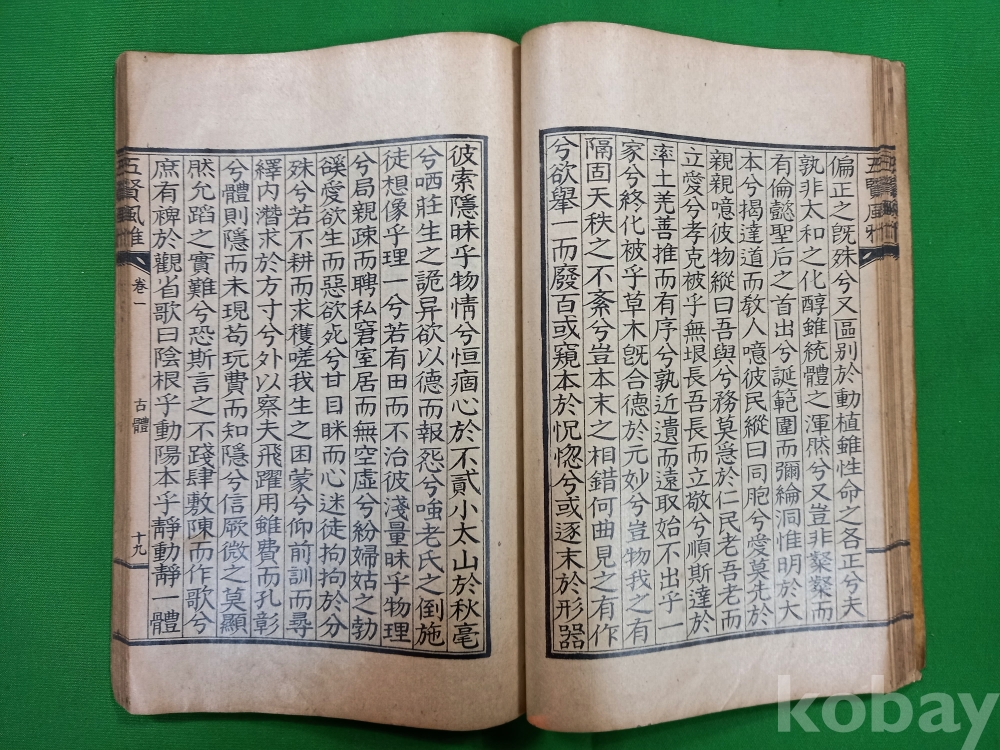 五賢風雅
偏正之旣殊兮又區別於動植雖性命之各正兮夫
孰非太和之化醇雖統體之渾然兮又豈非粲粲而
有倫懿聖后之首出兮誕範圍而彌綸洞惟明於大
本兮揭達道而敎人噫彼民縱曰同胞兮愛莫先於
親親噫彼物縱曰吾與兮務莫急於仁民老吾老而
立愛兮孝克被乎無垠長吾長而立敬兮順斯達於
率土羌善推而有序兮孰近遺而遠取始不出乎一
家兮終化被乎草木旣合德於元妙兮豈物我之有
隔固天秩之不紊兮豈本末之相錯何曲見之有作
兮欲擧一而廢百或窺本於怳惚兮或逐末於形器
彼索隱昧乎物情兮恒痼心於不貳小太山於秋毫
兮哂莊生之詭异欲以德而報怨兮嗤老氏之倒施
徒想像乎理一兮若有田而不治彼淺量昧乎物理
兮局親疎而騁私窘室居而無空虛兮紛婦姑之勃
豀愛欲生而惡欲死兮甘目眯而心迷徒拘拘於分
殊兮若不耕而求穫嗟我生之困蒙兮仰前訓而尋
繹内潛求於方寸兮外以察夫飛躍用雖費而孔彰
兮體則隱而未現苟玩費而知隱兮信厥微之莫顯
然允蹈之實難兮恐斯言之不踐肆敷陳而作歌兮
庶有裨於觀省歌曰陰根乎動陽本乎靜動靜一體
五賢風雅 卷一 古體 十九
kobay